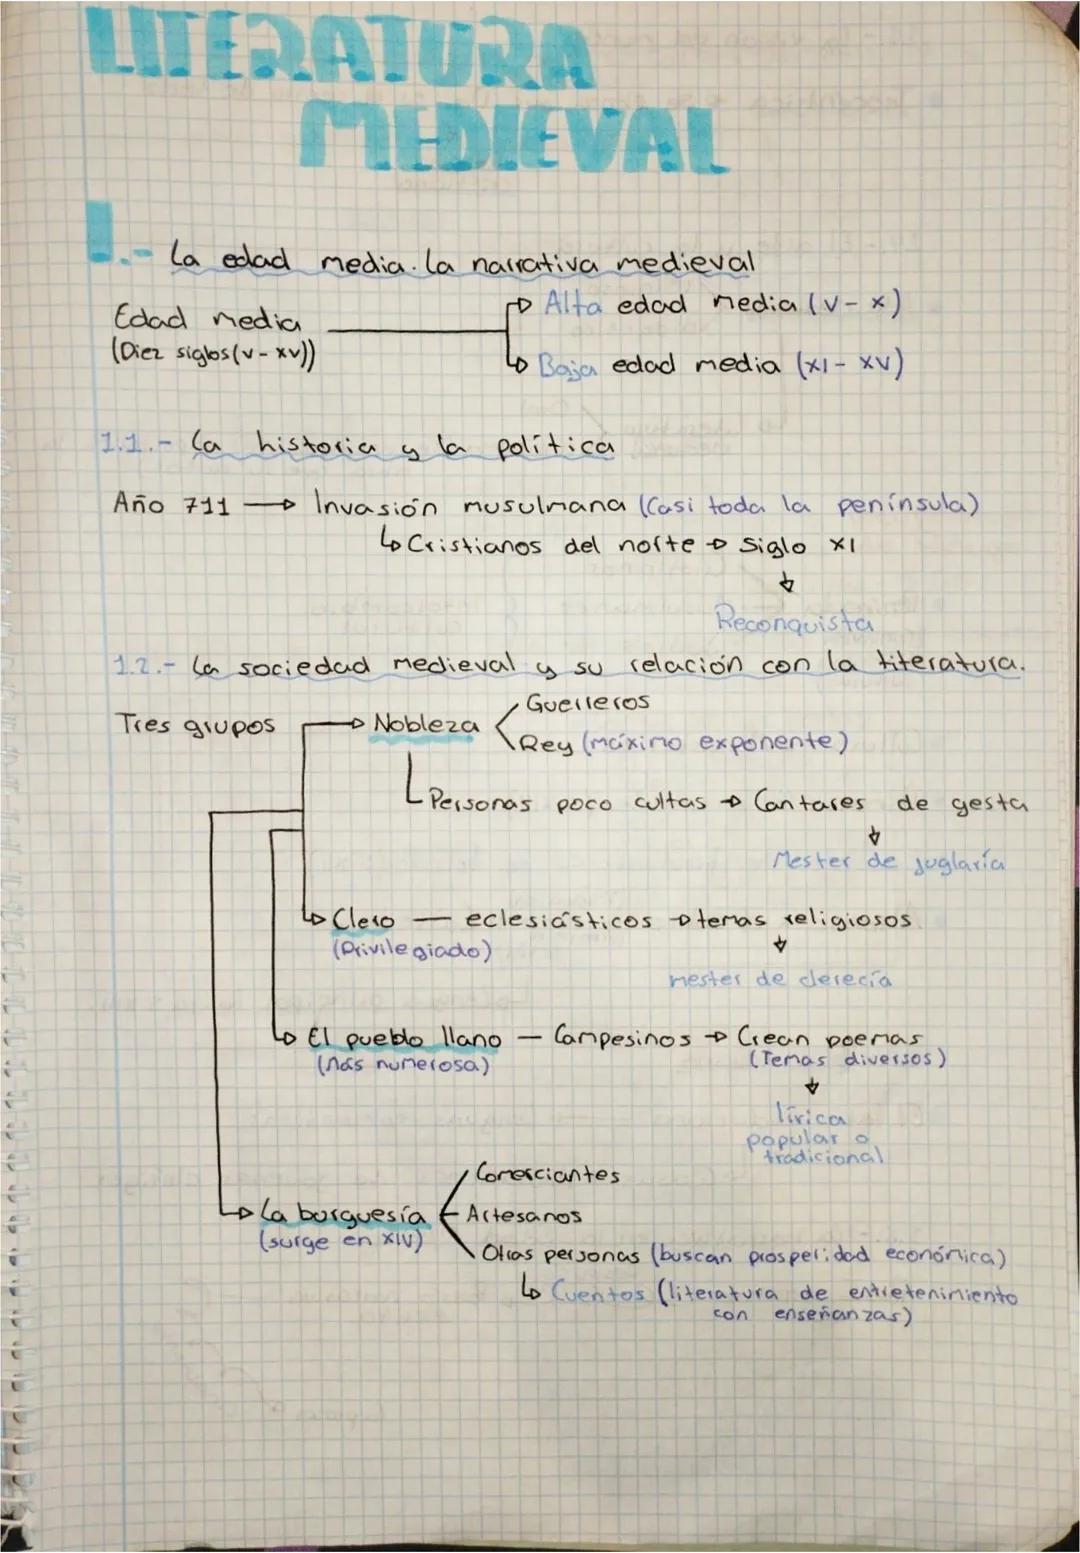 LITERATURA
MEDIEVAL
1.- La edad media. La narrativa medieval
Edad media
(Diez siglos (V - XV))
Alta edad media (V - X)
Baja edad media (XI - XV)
1.1.- La historia y la política
Año 711 → Invasión musulmana (Casi toda la península)
↳ Cristianos del norte → Siglo XI
↓
Reconquista
1.2.- La sociedad medieval y su relación con la literatura.
Tres grupos
→ Nobleza
Guerreros
Rey (máximo exponente)
Personas poco cultas → Cantares de gesta
↓
Mester de juglaría
Clero — eclesiásticos → temas religiosos
(Privilegiado)
↓
mester de clerecía
El pueblo llano — Campesinos → Crean poemas
(Más numerosa)
(Temas diversos)
↓
lírica
popular o
tradicional
La burguesía
(surge en XIV)
Comerciantes
Artesanos
Otras personas (buscan prosperidad económica)
↳ Cuentos (literatura de entretenimiento
con enseñanzas)